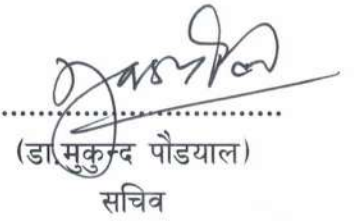 ....................................
(डा.मुकुन्द पौडयाल)
सचिव